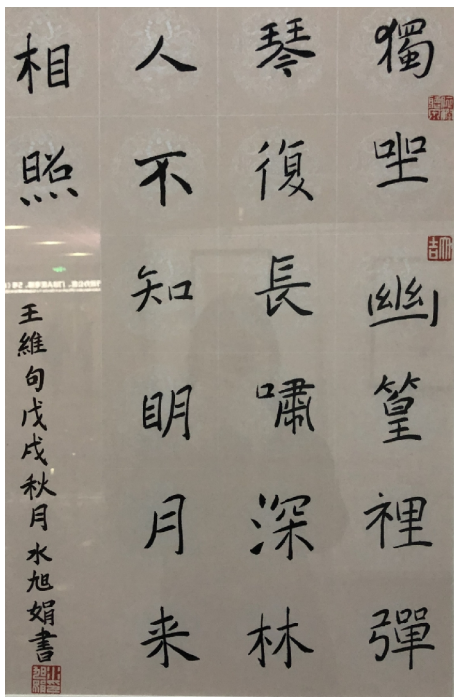 獨坐幽篁裡彈
琴復長嘯深林
人不知明月来
相照
王維句戊戌秋月水旭娟書